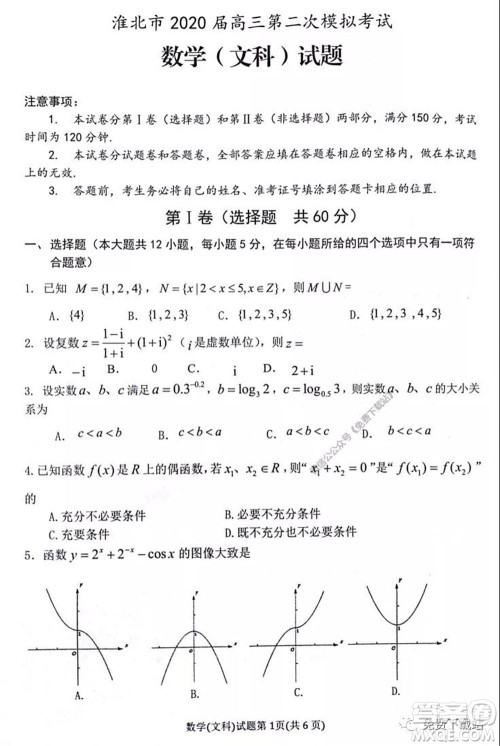 淮北市 2020 届高三第二次模拟考试
数学(文科)试题
注意事项:
1. 本试卷分第Ⅰ卷(选择题)和第Ⅱ卷(非选择题)两部分,满分 150 分,考试
时间为 120 分钟.
2. 本试卷分试题卷和答题卷,全部答案应填在答题卷相应的空格内,做在本试题上
的无效.
3. 答题前,考生务必将自己的姓名、准考证号填涂到答题卡相应的位置.
第Ⅰ卷(选择题 共 60 分)
一、选择题(本大题共 12 小题,每小题 5 分,在每小题所给的四个选项中只有一项符
合题意)
1. 已知 M={1,2,4}, N={x|2<x≤5,x∈Z},则M∪N=
A. {4} B. {1,2,3} C. {1,2,3,5} D. {1,2,3,4,5}
2. 设复数 z=(1-i)/(1+i)+(1+i)² (i是虚数单位),则 z=
A. -i B. i C. 0 D. 2+i
3. 设实数a、b、c满足a=0.3^{-0.2}, b=log₃2, c=log_{0.5}3,则实数a、b、c的大小关
系为
A. c<a<b B. c<b<a C. a<b<c D. b<c<a
4.已知函数f(x)是R上的偶函数,若x₁、x₂∈R,则“x₁+x₂=0”是“f(x₁)=f(x₂)”
的
A.充分不必要条件 B.必要不充分条件
C.充要条件 D.既不充分也不必要条件
5. 函数 y=2^x+2^{-x}-cos x 的图像大致是
y 1 O x y 1 O x y 1 O x y 1 O x
A. B. C. D.
数学(文科)试题第1页(共6页)
免费下载站